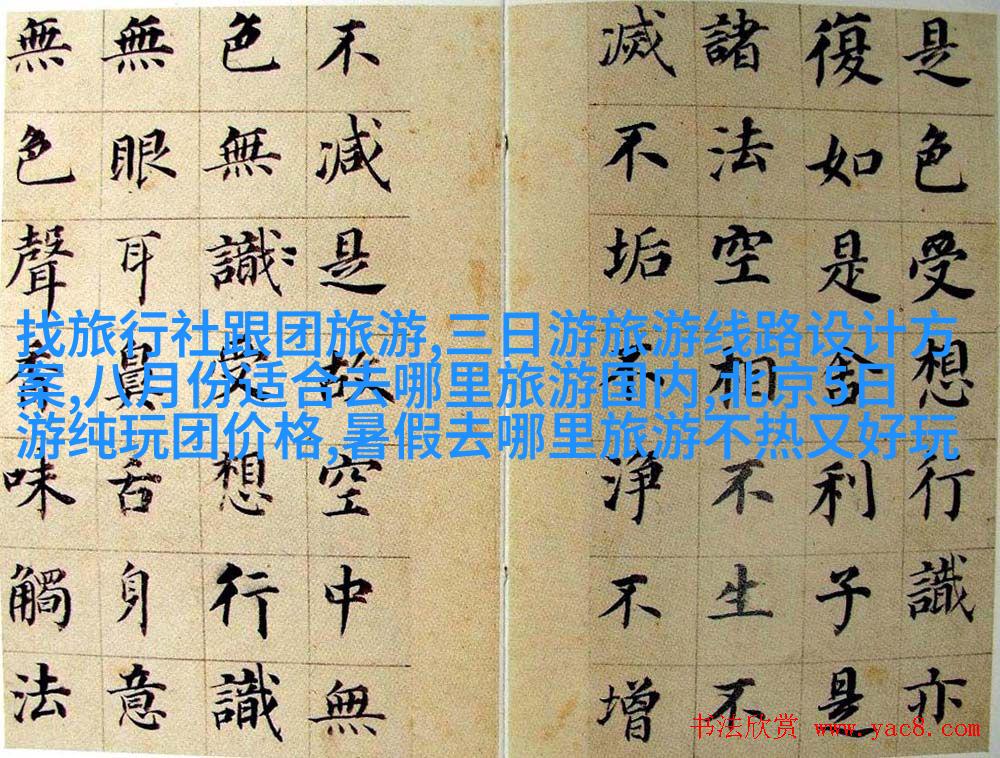 是色受想行識亦
復如是舍利子是
諸法空相不生不
滅不垢不淨不增
不減是故空中無
色無識受想行識
無眼耳鼻舌身意
無色聲香味觸法
找旅行社跟团旅游,三日游旅游线路设计方
案,八月份适合去哪里旅游国内,北京5日
游纯玩团价格,暑假去哪里旅游不热又好玩
书法欣赏 www.yac8.com